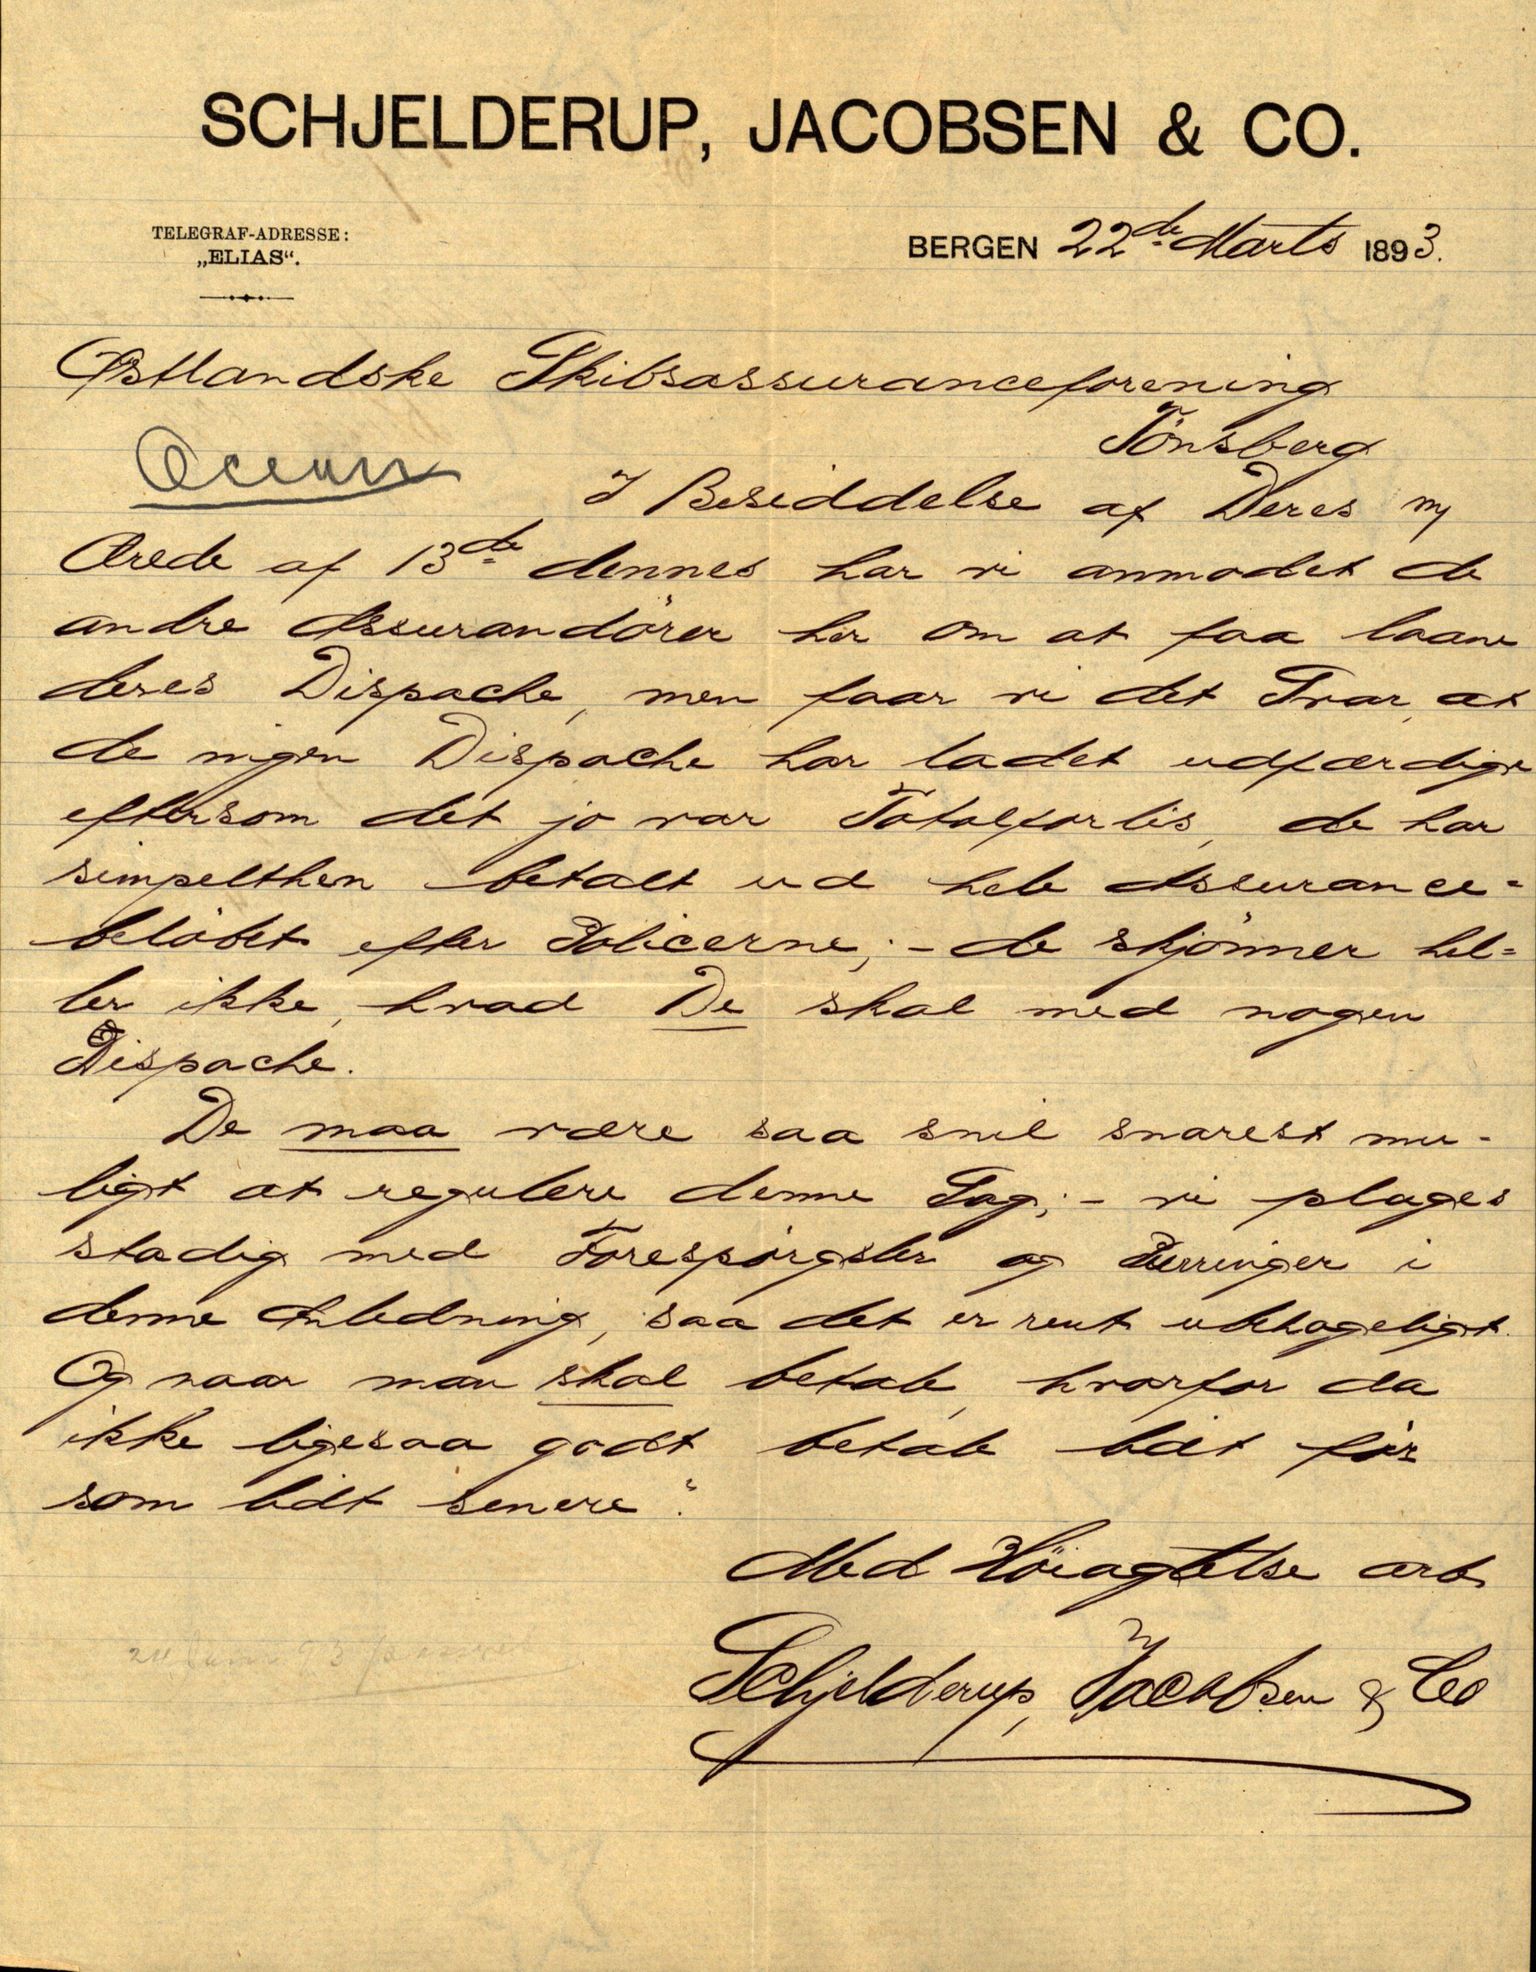 SCHJELDERUP, JACOBSEN & CO.
TELEGRAF-ADRESSE:
„ELIAS“.
BERGEN 22de Marts 1893.
Østlandske Skibsassuranceforening
Tönsberg
I Besiddelse af Deres
Ærede af 13de dennes har vi anmodet de
andre Assurandörer her om at faa laane
deres Dispache, men faar vi det Svar, at
de ingen Dispache har ladet udfærdige
eftersom det jo var Totalforlis, de har
simpelthen betalt ud hele Assurance=
belöbet efter Policerne; - de skjönner hel=
ler ikke, hvad De skal med nogen
Dispache.
De maa være saa snil snarest mu-
ligt at regulere denne Sag; - vi plages
stadig med Forespörgsler og Purringer i
denne Anledning, saa det er rent ubehageligt.
Og naar man skal betale, hvorfor da
ikke ligesaa godt betale lidt för
som lidt senere?
Med Höiagtelse arb.
Schjelderup, Jacobsen & Co